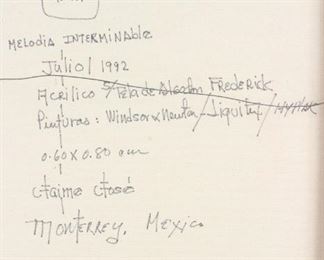 MELODIA INTERMINABLE
Julio / 1992
Acrilico s/Tela de Algodon FREDERICK
Pinturas: Windsor & Newton / Liquitex /
0.60 X 0.80 cm
Jaime José
MONTERREY, MEXICO